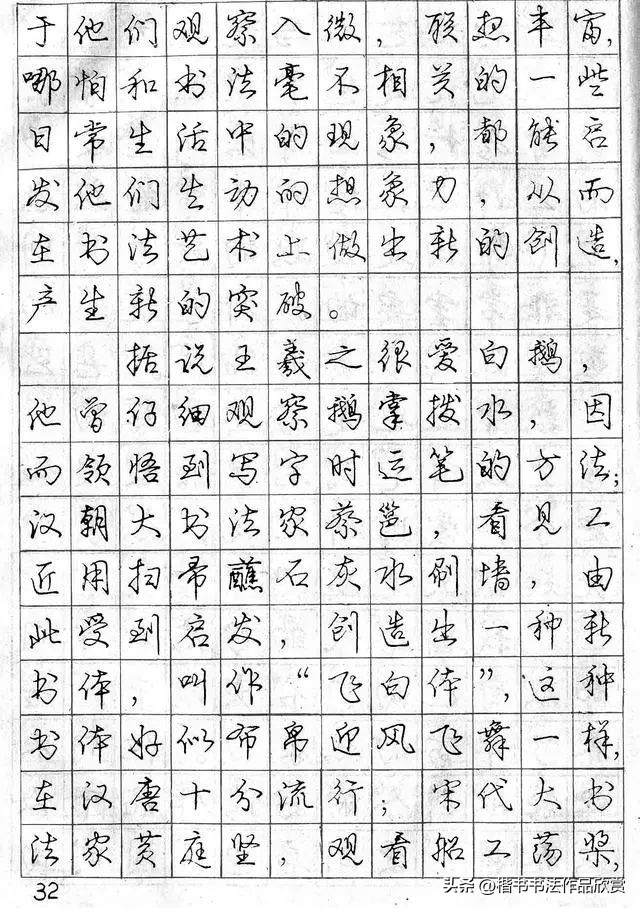 于他们观察入微，联想丰富，
哪怕和书法毫不相关的一些
日常生活中的现象，都能启
发他们生动的想象力，从而
在书法艺术上做出新的创造，
产生新的突破。
据说王羲之很爱白鹅，
他曾仔细观察鹅掌拨水，因
而领悟到写字时运笔的方法；
汉朝大书法家蔡邕，看见工
近用扫帚蘸石灰水刷墙，由
此受到启发，创造出一种新
书体，叫作“飞白体”，这种
书体好似布帛迎风飞舞一样，
在汉唐十分流行；宋代大书
法家黄庭坚，观看船工荡桨，
32
头条@楷书书法作品欣赏